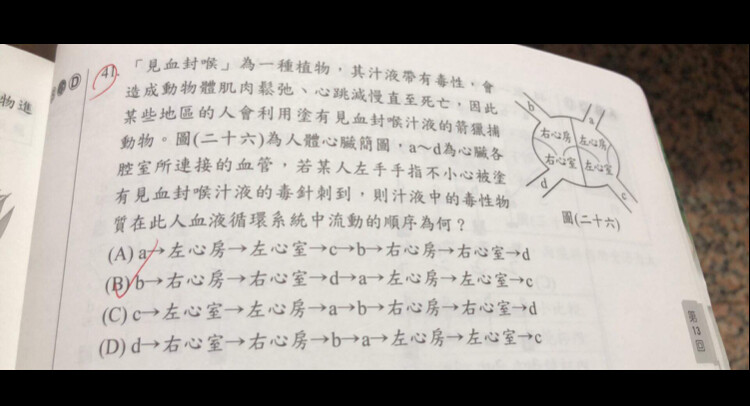 物進
D 41. 「見血封喉」為一種植物，其汁液帶有毒性，會
造成動物體肌肉鬆弛、心跳減慢直至死亡，因此
某些地區的人會利用塗有見血封喉汁液的箭獵捕
動物。圖(二十六)為人體心臟簡圖，a～d為心臟各
腔室所連接的血管，若某人左手手指不小心被塗
有見血封喉汁液的毒針刺到，則汁液中的毒性物
質在此人血液循環系統中流動的順序為何？
(A) a→左心房→左心室→c→b→右心房→右心室→d
(B) b→右心房→右心室→d→a→左心房→左心室→c
(C) c→左心室→左心房→a→b→右心房→右心室→d
(D) d→右心室→右心房→b→a→左心房→左心室→c
b
a
右心房
左心房
右心室
左心室
d
c
圖(二十六)
第
13
回